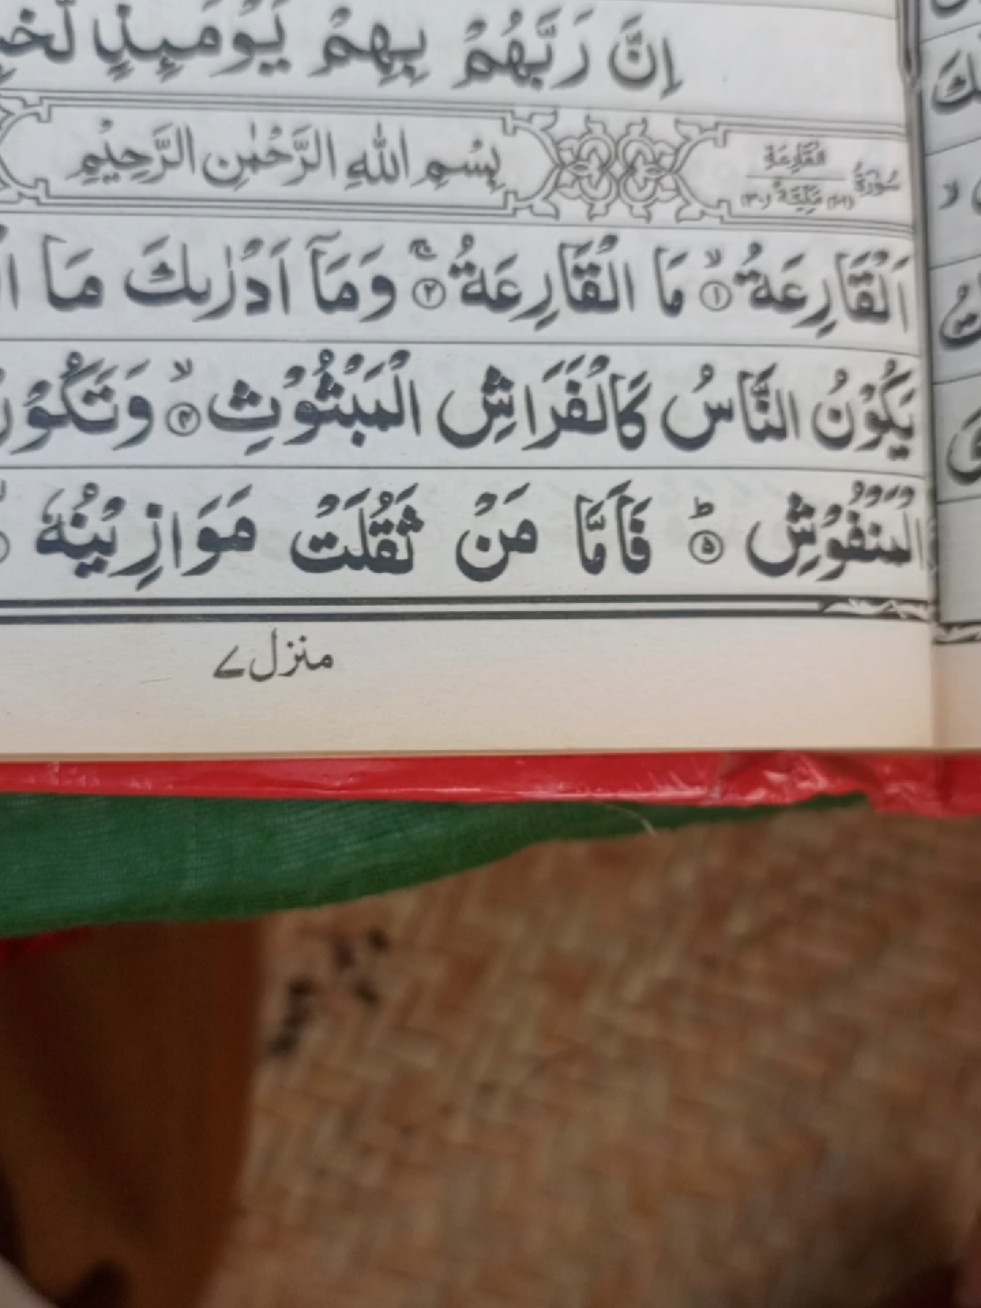 اِنَّ رَبَّهُمْ بِهِمْ يَوْمَىِٕذٍ
سُوْرَةُ الْقَارِعَةِ مَكِّيَّةٌ (٣٠) بِسْمِ اللّٰهِ الرَّحْمٰنِ الرَّحِيْمِ
اَلْقَارِعَةُ ۙ﴿١﴾ مَا الْقَارِعَةُ ۚ﴿٢﴾ وَمَاۤ اَدْرٰىكَ مَا
يَكُوْنُ النَّاسُ كَالْفَرَاشِ الْمَبْثُوْثِ ۙ﴿٤﴾
الْمَنْفُوْشِ ؕ﴿٥﴾ فَاَمَّا مَنْ ثَقُلَتْ مَوَازِيْنُهٗ
منزل ٧